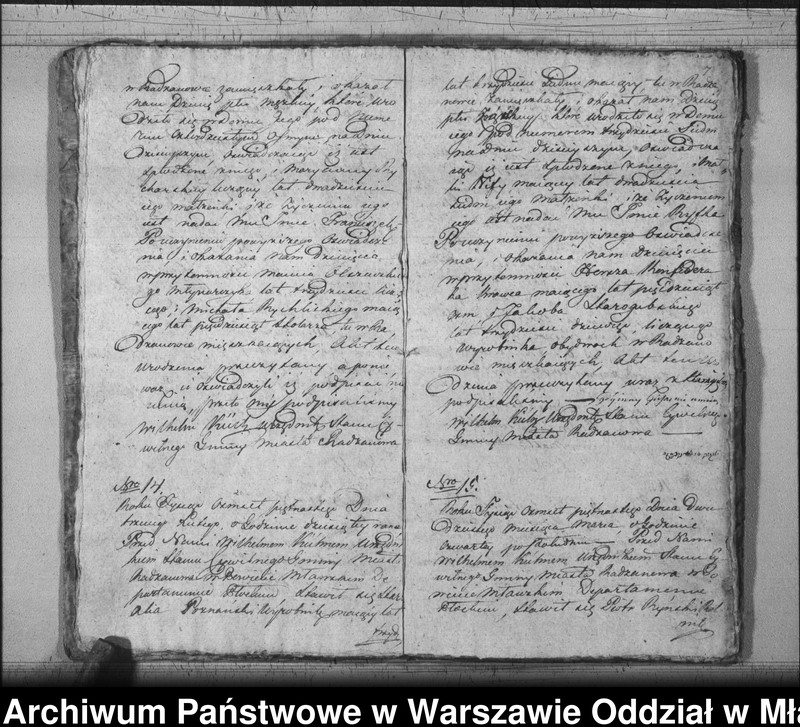 w Radzanowie zamieszkały, i okazał
nam Dziecię płci męzkiey, które uro
dziło się w domu iego pod Nume
rem Ośmym na dniu
Dzisieyszym, Oświadczaiąc iż iest
spłodzone z niego, i Maryanny Ry
charskiey liczący lat dwadzieścia
iego małżonki i że życzeniem iego
iest nadać Mu Imie Franciszek
Po uczynieniu powyższego Oświadcze
nia i okazania nam Dziecięcia
w przytomności Marcina Olszewskie
go Młynarczyka lat trzydzieści licz
ącego, i Michała Rychlickiego maią
cego lat pięćdziesiąt w Ra
dzanowie mieszkaiących, Akt ten
Urodzenia przeczytany a ponie
waż ci Oświadczyli iż podpisać nie
umią, przeto my podpisaliśmy
Wilhelm Kühn Urzędnik Stanu Cy
wilnego Gminy Miasta Radzanowa
Nro 14.
Roku Tysiąc Ośmset piętnastego Dnia
trzeciego Lutego, o Godzinie dziesiątey rano
Przed Nami Wilhelmem Kühnem Urzędni
kiem Stanu Cywilnego Gminy Miasta
Radzanowa w Powiecie Mławskim De
partamencie Płockim, Stawił się
Poznański Wyrobnik maiący lat
trzydz
7
lat trzydzieści siedm maiący tu w Radza
nowie zamieszkały, i okazał nam Dziecię
płci żeńskiey, które urodziło się w Domu
iego pod numerem trzydzieści siedm
na dniu dzisieyszym, Oświadcza
iąc iż iest spłodzone z niego, i
maiący lat dwadzieścia
siedm iego małżonki i że życzeniem
iego iest nadać Mu Imie Ryfka
Po uczynieniu powyższego Oświadcze
nia, i okazania nam Dziecięcia
w przytomności Herszka
Krawca maiącego lat pięćdziesiąt
i Jakuba
lat trzydzieści dziewięć, liczącego
Wyrobnika, obydwóch w Radzano
wie mieszkaiących, Akt ten U
rodzenia przeczytany wraz z Stawaiącym
podpisaliśmy
Wilhelm Kühn Urzędnik Stanu Cywilnego
Gminy Miasta Radzanowa
Nro 15.
Roku Tysiąc Ośmset piętnastego Dnia Dwu
dziestego miesiąca Marca o godzinie
czwartey po południu Przed Nami
Wilhelmem Kühnem Urzędnikiem Stanu Cy
wilnego Gminy Miasta Radzanowa w Po
wiecie Mławskim Departamencie
Płockim, Stawił się Piotr Ryński Rol
nik
Archiwum Państwowe w Warszawie Oddział w Mł